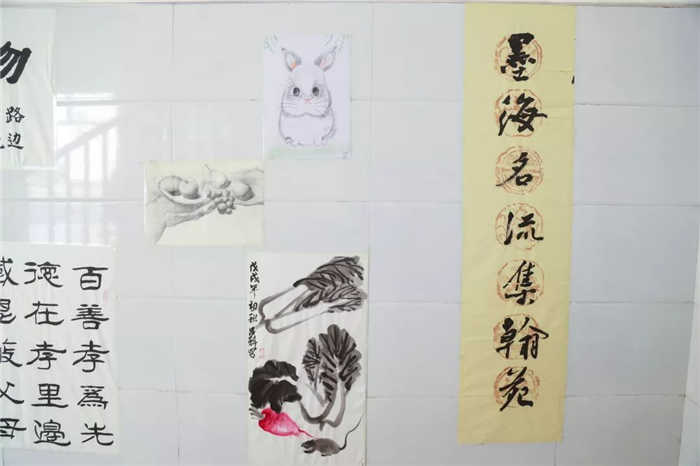 墨海名流集翰苑
戊戌年初秋
勿
路边
百善孝為先
德在孝里邊
父母